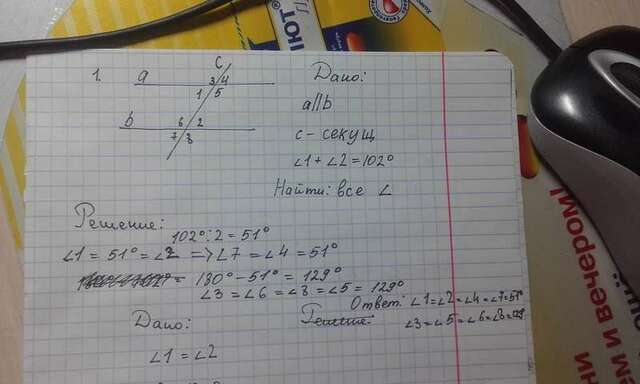 1. a
c
3 4
1 5
b
6 2
7 8
Дано:
a||b
c - секущ
∠1 + ∠2 = 102°
Найти: все ∠
Решение:
102° : 2 = 51°
∠1 = 51° = ∠2 => ∠7 = ∠4 = 51°
= 180° - 51° = 129°
∠3 = ∠6 = ∠8 = ∠5 = 129°
Ответ: ∠1 = ∠2 = ∠4 = ∠7 = 51°
∠3 = ∠5 = ∠6 = ∠8 = 129
Решение:
Дано:
∠1 = ∠2
ЮТ®
И ВЕЧЕРОМ!